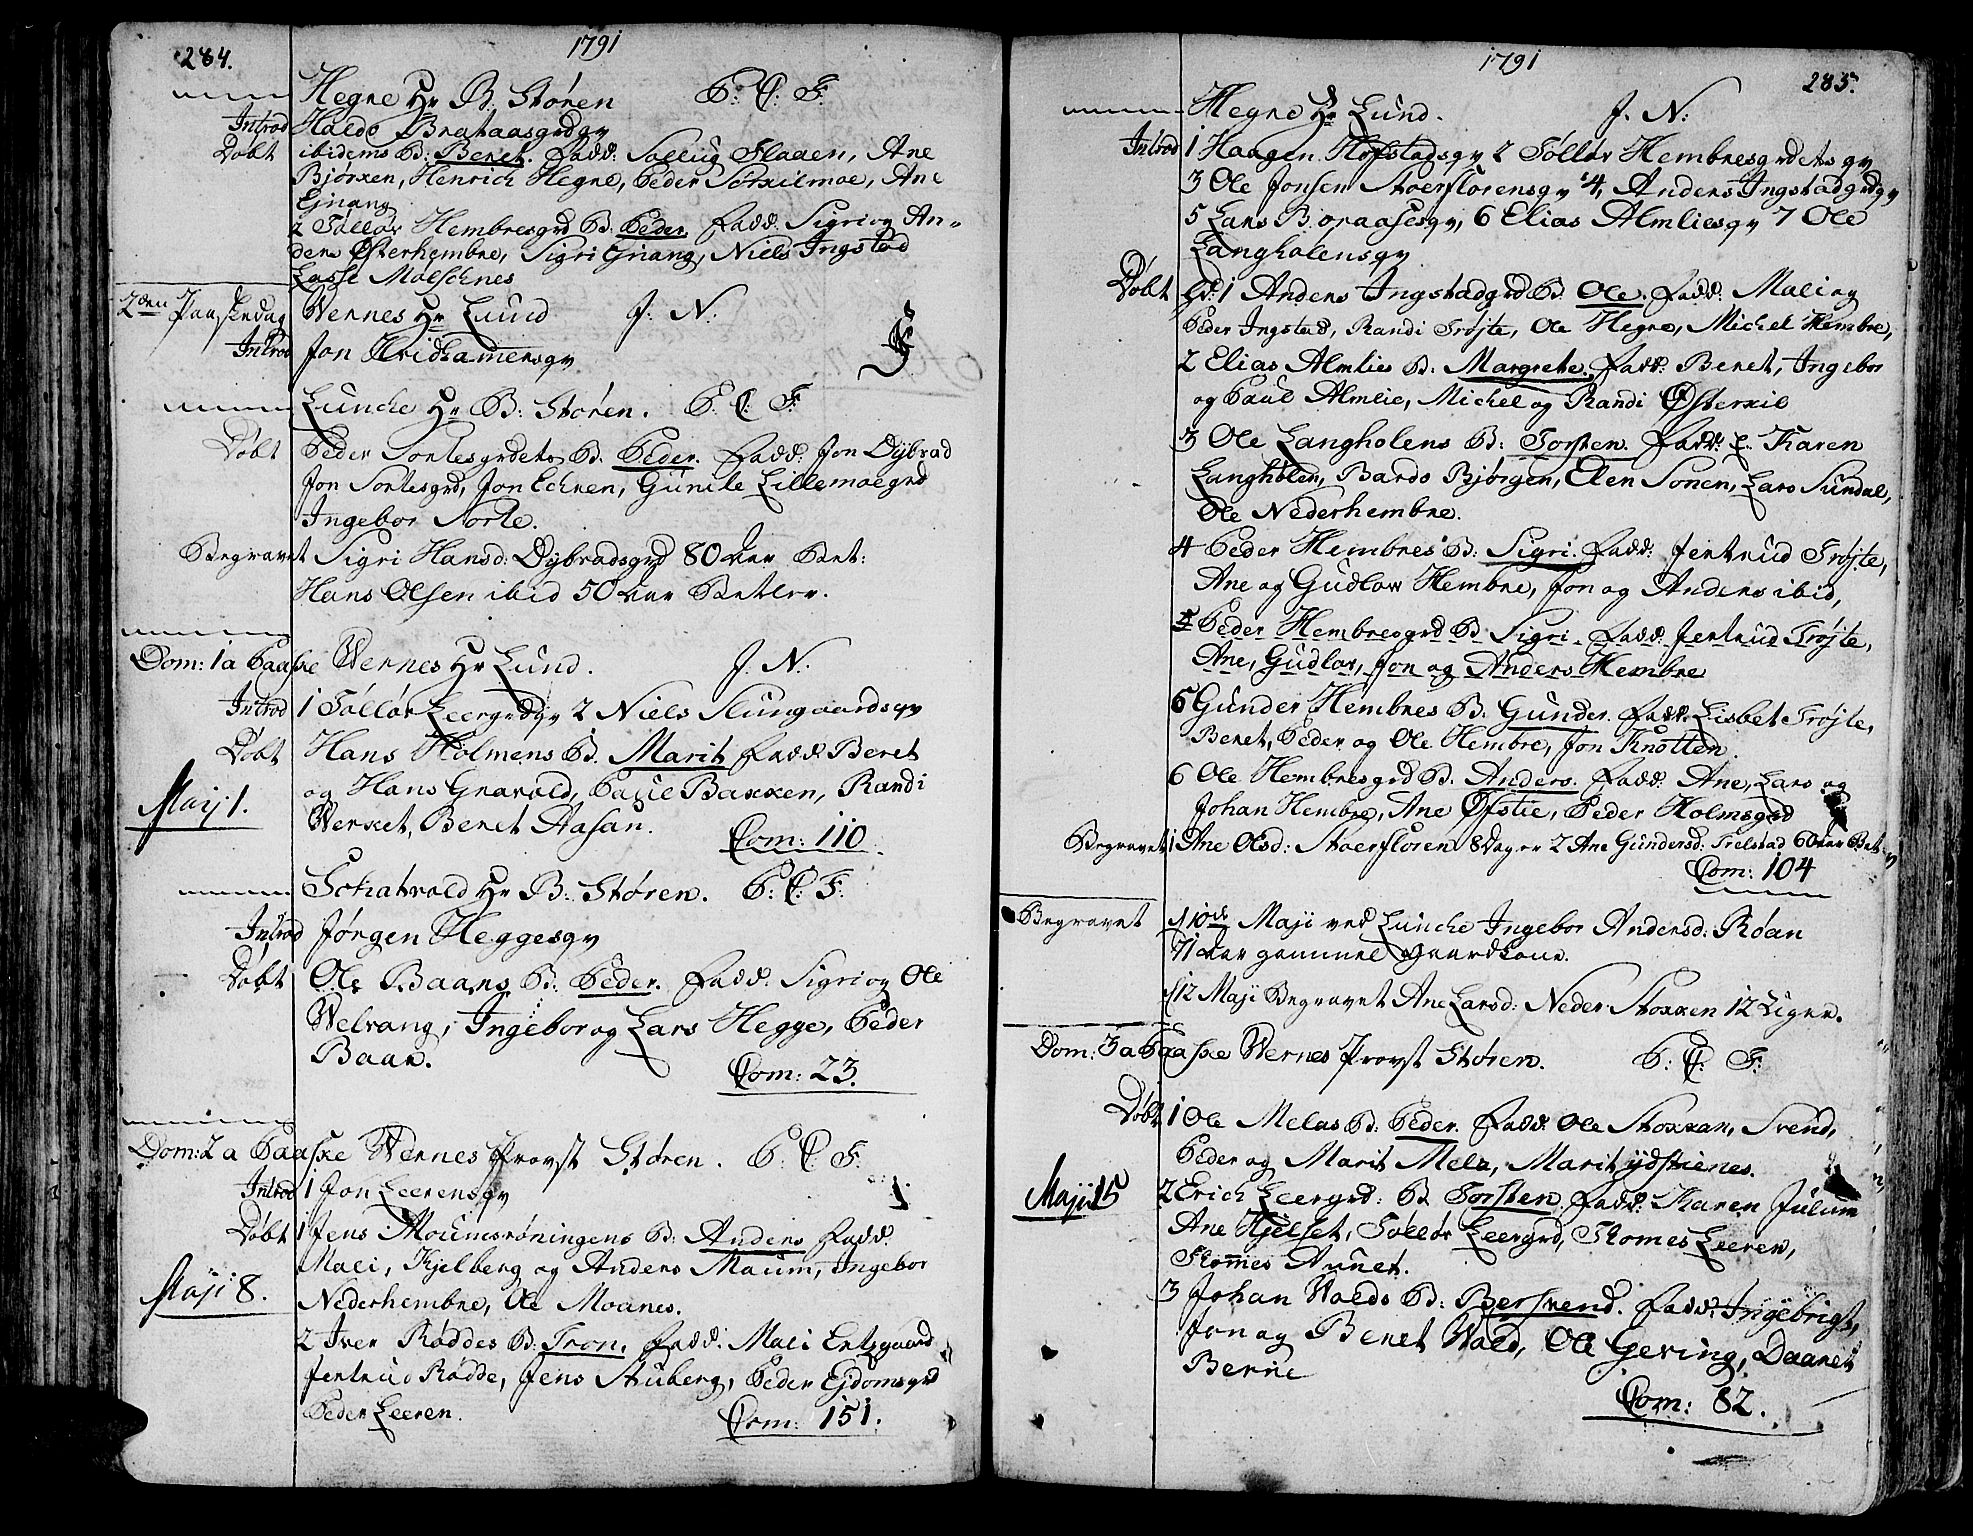 284.
1791
Hegne Hr B. Støren P: C: F.
Introd Haldo Brataasgrdgv
Døbt ibidems B: Beret. Fadd: Sollug Flaaen, Ane
Bjørxen, Henrich Hegne, Peder Sorxilmoe, Ane
Gjnang
2 Tølløv Hembresgrd B: Peder. Fadd. Sigri og An-
ders Østerhembre, Sigri Gnang, Niels Ingstad
Lasse Molschnes
2den Paaskedag Wernes Hr Lund J: N:
Introd Jon Hridhamersgv
Luncke Hr B: Støren. P: C: F.
Døbt Peder Sortesgrdets B. Peder. Fadd: Jon Dybvad
Jon Sortesgrd, Jon Echren, Gunile Lillemoegrd
Ingebor Sorte.
Begravet Sigri Hansd: Dybvadsgrd 80 Aar Bet:
Hans Olsen ibid 50 Aar Betler.
Dom: 1 a Paaske Wernes Hr Lund. J. N.
Introd 1 Tølløv Leergrdgv 2 Niels Slungaardsgv
Døbt Hans Holmens B. Marit Fadd. Beret
og Hans Gravald, Paul Baxxen, Randi
Maij 1.
Werket, Beret Aasan.
Com: 110
Schatvold Hr B: Støren. P: C: F.
Introd Jørgen Heggesgv
Døbt Ole Baans B. Peder. Fadd. Sigri og Ole
Welvang, Ingebor og Lars Hegge, Peder
Baan.
Com: 23.
Dom: 2 a Paaske Wernes Provst Støren. P: C: F.
Introd 1 Jon Leerensgv
Døbt 1 Jens Moumsrøningens B: Anders Fadd.
Mali, Kjelberg og Anders Maum, Ingebor
Maji 8.
Nederhembre, Ole Moanes.
2 Iver Røddes B. Tron. Fadd. Mali Ertsgaard
Jertrud Rødde, Jens Stuberg, Peder Ejdomsgrd
Peder Leeren.
Com: 151.
1791
285.
Hegne Hr Lund. J. N:
Introd 1 Haagen Hofstadsgv 2 Tølløv Hembresgrdets gv
3 Ole Jonsen Stoerflorensgv 4, Anders Ingstadgrdgv
5 Lars Boraasesgv, 6 Elias Almliesgv 7 Ole
Langholensgv
Døbt 1 Anders Ingstadgrd B. Ole. Fadd. Mali og
Peder Ingstad, Randi Trøjte, Ole Hegre, Michel Hembre,
2 Elias Almlies B: Margrete. Fadd: Beret, Ingebor
og Paul Almlie, Michel og Randi Østerxil
3 Ole Langholens B: Torsten. Fadd: Karen
Langholen, Bardo Bjørgen, Elen Sonen, Lars Sundal,
Ole Nederhembre.
4 Peder Hembres B: Sigri. Fadd: Jertrud Trøjte,
Ane og Gudlov Hembre, Jon og Anders ibid,
5 Peder Hembresgrd B. Sigri. Fadd. Jertrud Trøjte,
Ane, Gudlov, Jon og Anders Hembre
5 Gunder Hembres B. Gunder. Fadd. Lisbet Trøjte,
Beret, Peder og Ole Hembre, Jon Knotten
6 Ole Hembresgrd B. Anders. Fadd. Ane, Lars og
Johan Hembre, Ane Øfstie, Peder Holmsgrd
Begravet 1 Ane Olsd: Stoerfloren 8 Dager 2 Ane Gundersd: Trelstad 60 Aar Bet
Com: 104
Begravet d 10de Maji ved Luncke Ingebor Andersd: Røan
71 Aar gammel gaardkone.
d 12 Maji Begravet Ane Larsd: Neder Stoxxen 12 Uger.
Dom: 3 a Paaske Wernes Provst Støren. P: C: F:
Døbt 1 Ole Melas B: Peder. Fadd. Ole Stoxxan, Svend,
Peder og Marit Mela, Marit ydstienes.
Maji 15
2 Erich Leergrd: B Torsten. Fadd. Karen Julum
Ane Hjelset, Tølløv Leergrd, Thomes Leeren,
Thomes Aunet.
3 Johan Walds B: Bersvend. Fadd. Ingebrigt,
Jon og Beret Wald, Ole Gjeving, Daaret
Berrie
Com: 82.